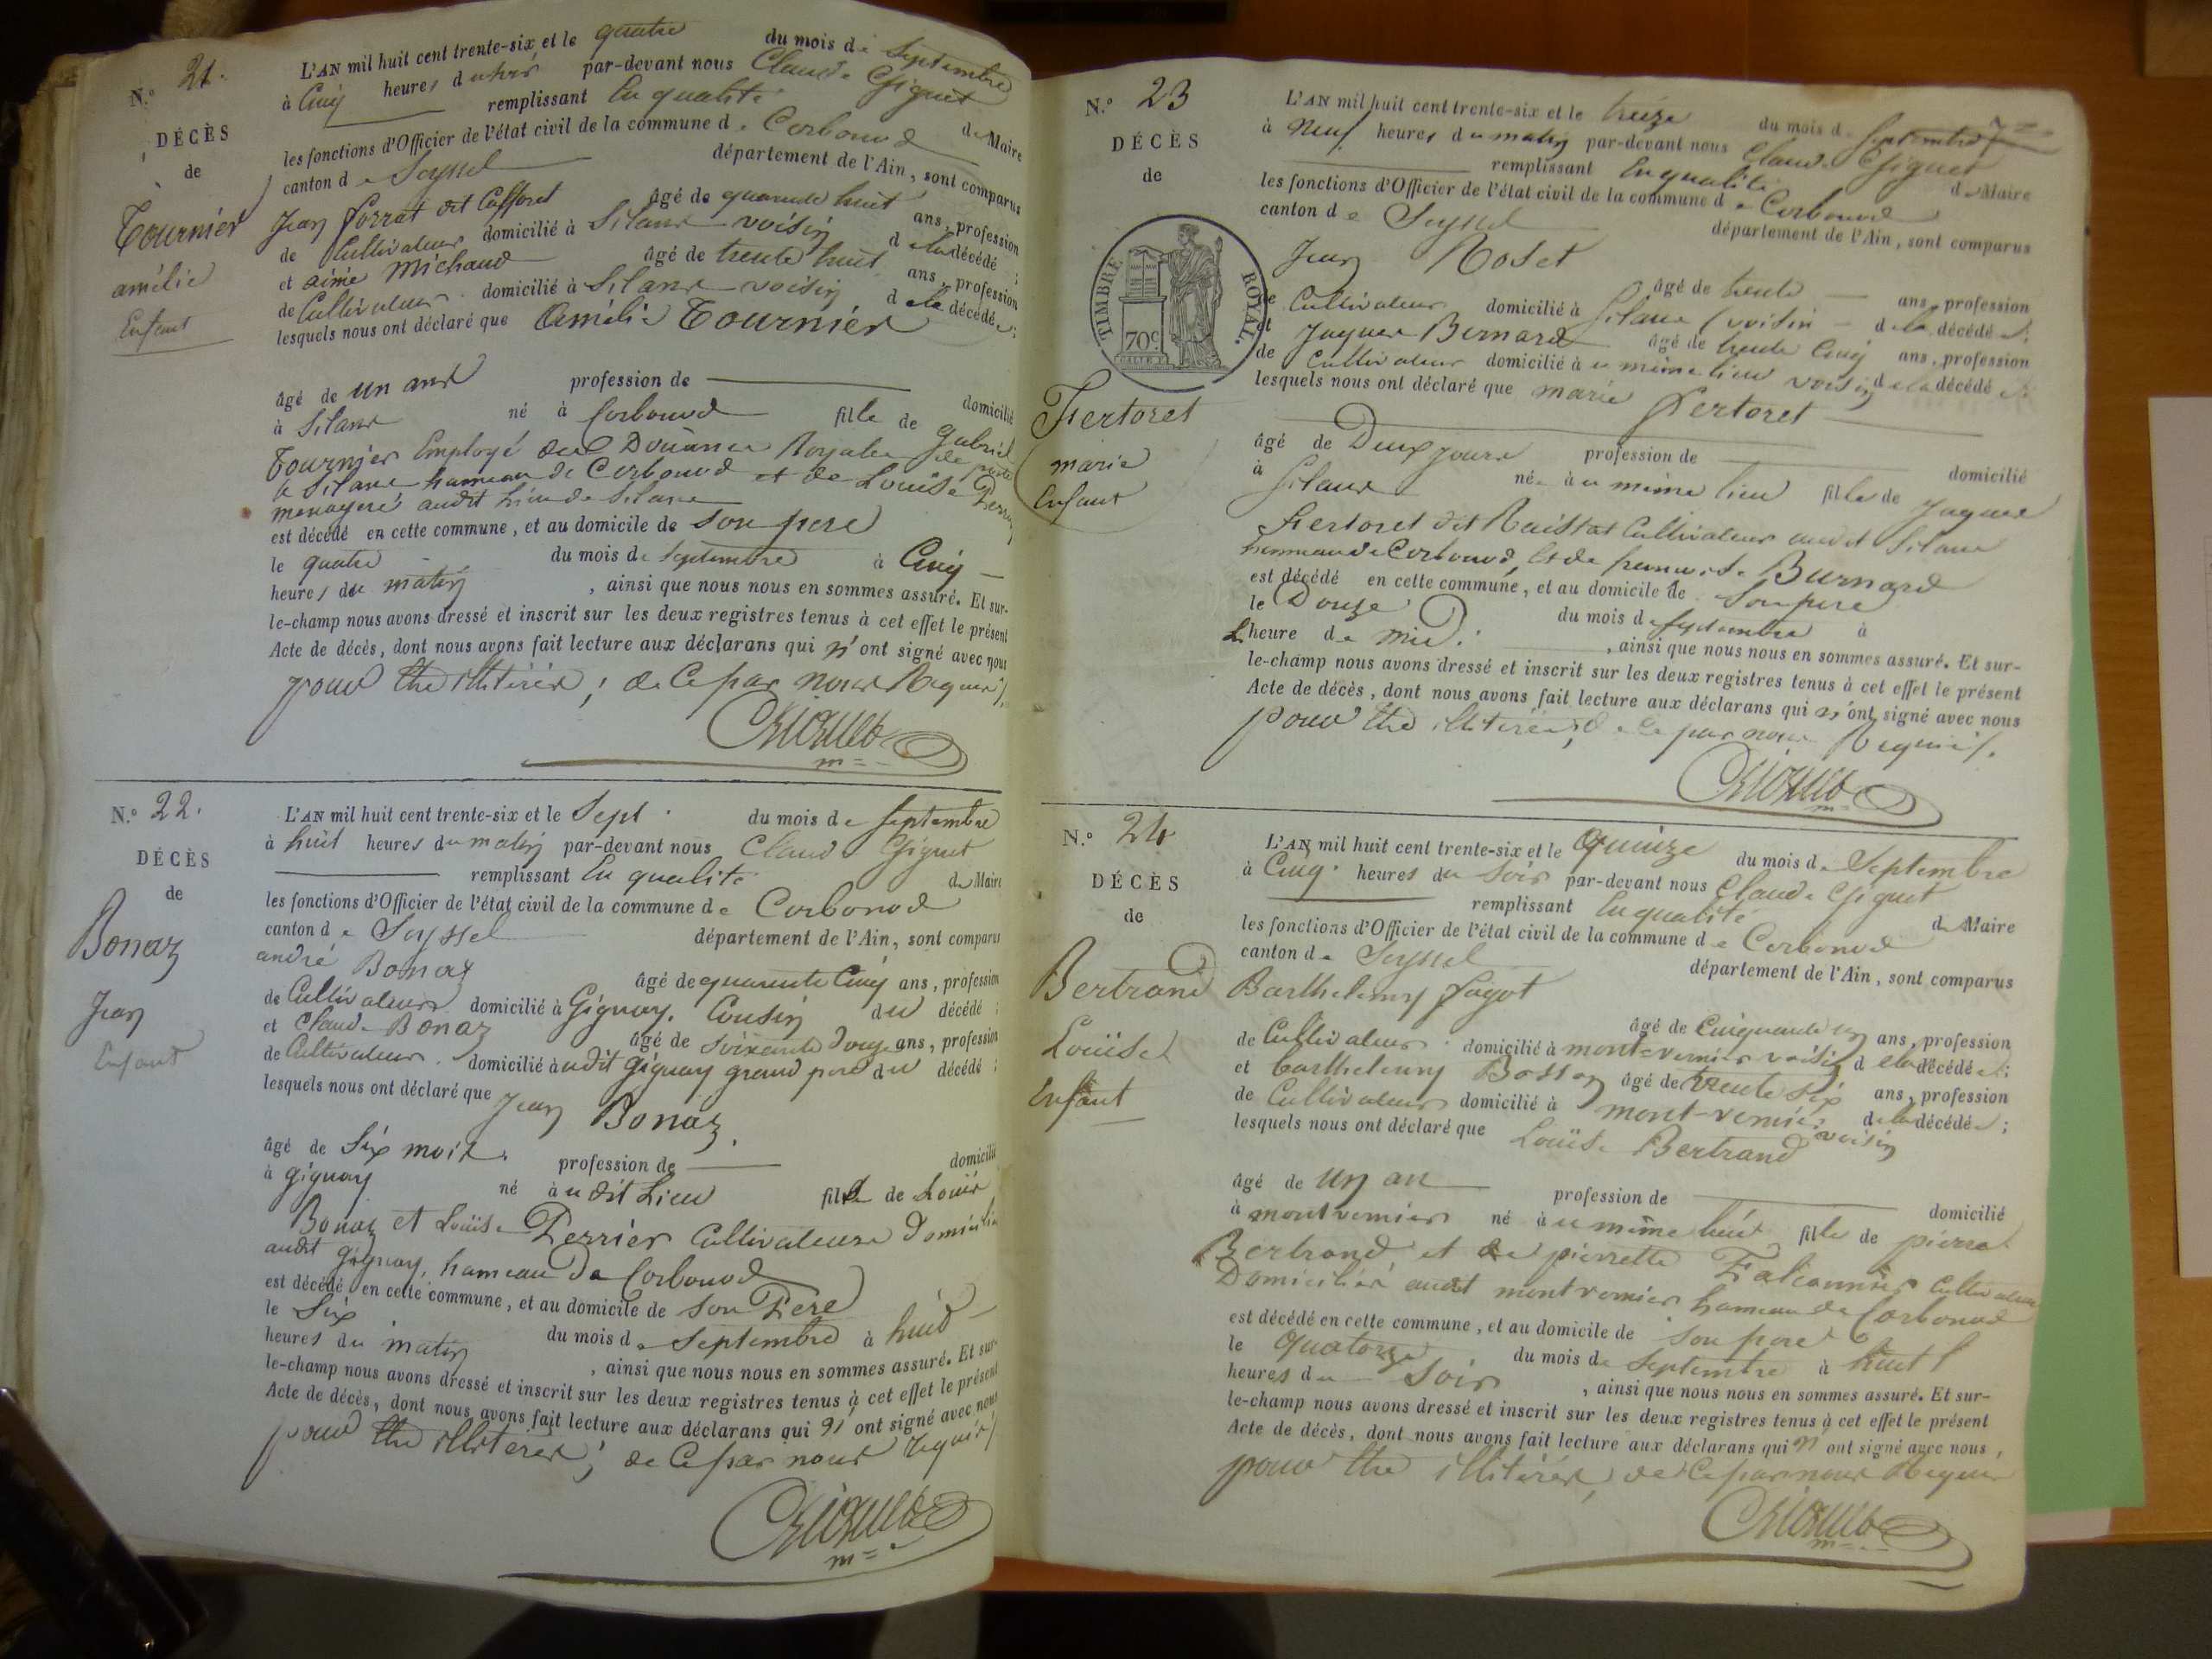 N.º 21.
DÉCÈS
de
Tournier
amélie
Enfant
L'AN mil huit cent trente-six et le quatre du mois de Septembre
à Cinq heures du soir par-devant nous Claude Giguet
remplissant En qualité de Maire
les fonctions d'Officier de l'état civil de la commune de Corbonod
canton de Seyssel département de l'Ain, sont comparus
Jean forrat dit Cafforet âgé de quarante huit ans, profession
de Cultivateur domicilié à Silans voisin de la décédé ;
et aimé Michaud âgé de trente huit ans, profession
de Cultivateur domicilié à Silans voisin de la décédée ;
lesquels nous ont déclaré que Amélie Tournier
âgé de un ans profession de domicilié
à Silans né à Corbonod fille de Gabriel
Tournier Employé des Douanes Royales de poste
à Silans hameau de Corbonod et de Louise
menagere audit lieu de Silans
est décédé en cette commune, et au domicile de son pere
le quatre du mois de Septembre à Cinq
heures du matin , ainsi que nous nous en sommes assuré. Et sur-
le-champ nous avons dressé et inscrit sur les deux registres tenus à cet effet le présent
Acte de décès, dont nous avons fait lecture aux déclarans qui n'ont signé avec nous
pour être illitérés ; de Ce par nous Requis /.
Giguet
m=
N.º 22.
DÉCÈS
de
Bonaz
Jean
Enfant
L'AN mil huit cent trente-six et le Sept du mois de Septembre
à huit heures du matin par-devant nous Claude Giguet
remplissant En qualité de Maire
les fonctions d'Officier de l'état civil de la commune de Corbonod
canton de Seyssel département de l'Ain, sont comparus
andré Bonaz âgé de quarante Cinq ans, profession
de Cultivateur domicilié à Gignay. Cousin du décédé ;
et Claude Bonaz âgé de soixante douze ans, profession
de Cultivateur. domicilié audit Gignay grand pere du décédé ;
lesquels nous ont déclaré que Jean Bonaz.
âgé de Six mois. profession de domicilié
à gignay né au dit Lieu fils de Louis
Bonaz et Louise Perrier Cultivateurs Domicilié
audit gignay, hameau de Corbonod
est décédé en cette commune, et au domicile de son Pere
le Six du mois de Septembre à huit
heures du matin , ainsi que nous nous en sommes assuré. Et sur-
le-champ nous avons dressé et inscrit sur les deux registres tenus à cet effet le présent
Acte de décès, dont nous avons fait lecture aux déclarans qui n'ont signé avec nous
pour être illitérés ; de Ce par nous requis /
Giguet
m=
N.º 23
DÉCÈS
de
TIMBRE ROYAL.
70c
Fertoret
marie
Enfant
L'AN mil huit cent trente-six et le treize du mois de Septembre
à Neuf heures du matin par-devant nous Claude Giguet
remplissant En qualité de Maire
les fonctions d'Officier de l'état civil de la commune de Corbonod
canton de Seyssel département de l'Ain, sont comparus
Jean Roset âgé de trente ans, profession
de Cultivateur domicilié à Silans voisin de la décédé ;
et Jaques Bernard âgé de trente Cinq ans, profession
de Cultivateur domicilié à u même lieu voisin de la décédé ;
lesquels nous ont déclaré que marie fertoret
âgé de Deux jours profession de domicilié
à Silans né à u même lieu fille de Jaques
Fertoret dit Cultivateur audit Silans
hameau de Corbonod, Et de Burnard
est décédé en cette commune, et au domicile de Son pere
le Douze du mois de Septembre à
L'heure de midi. , ainsi que nous nous en sommes assuré. Et sur-
le-champ nous avons dressé et inscrit sur les deux registres tenus à cet effet le présent
Acte de décès, dont nous avons fait lecture aux déclarans qui n'ont signé avec nous
pour être illitérés ; de Ce par nous Requis /.
Giguet
m=
N.º 24
DÉCÈS
de
Bertrand
Louise
Enfant
L'AN mil huit cent trente-six et le Quinze du mois de Septembre
à Cinq heures du Soir par-devant nous Claude Giguet
remplissant En qualité de Maire
les fonctions d'Officier de l'état civil de la commune de Corbonod
canton de Seyssel département de l'Ain, sont comparus
Barthelemy fagot âgé de Cinquante un ans, profession
de Cultivateur domicilié à mont-vernier voisin de la décédé ;
et barthelemy Bosson âgé de trente six ans, profession
de Cultivateur domicilié à mont-vernier voisin de la décédé ;
lesquels nous ont déclaré que Louise Bertrand
âgé de Un an profession de domicilié
à montvernier né à u même lieu fille de pierre
Bertrand et de pierrette Falconnier Cultivateurs
Domiciliés audit montvernier hameau de Corbonod
est décédé en cette commune, et au domicile de son pere
le Quatorze du mois de Septembre à huit
heures du Soir , ainsi que nous nous en sommes assuré. Et sur-
le-champ nous avons dressé et inscrit sur les deux registres tenus à cet effet le présent
Acte de décès, dont nous avons fait lecture aux déclarans qui n'ont signé avec nous,
pour être illitérés, de Ce par nous Requis
Giguet
m=